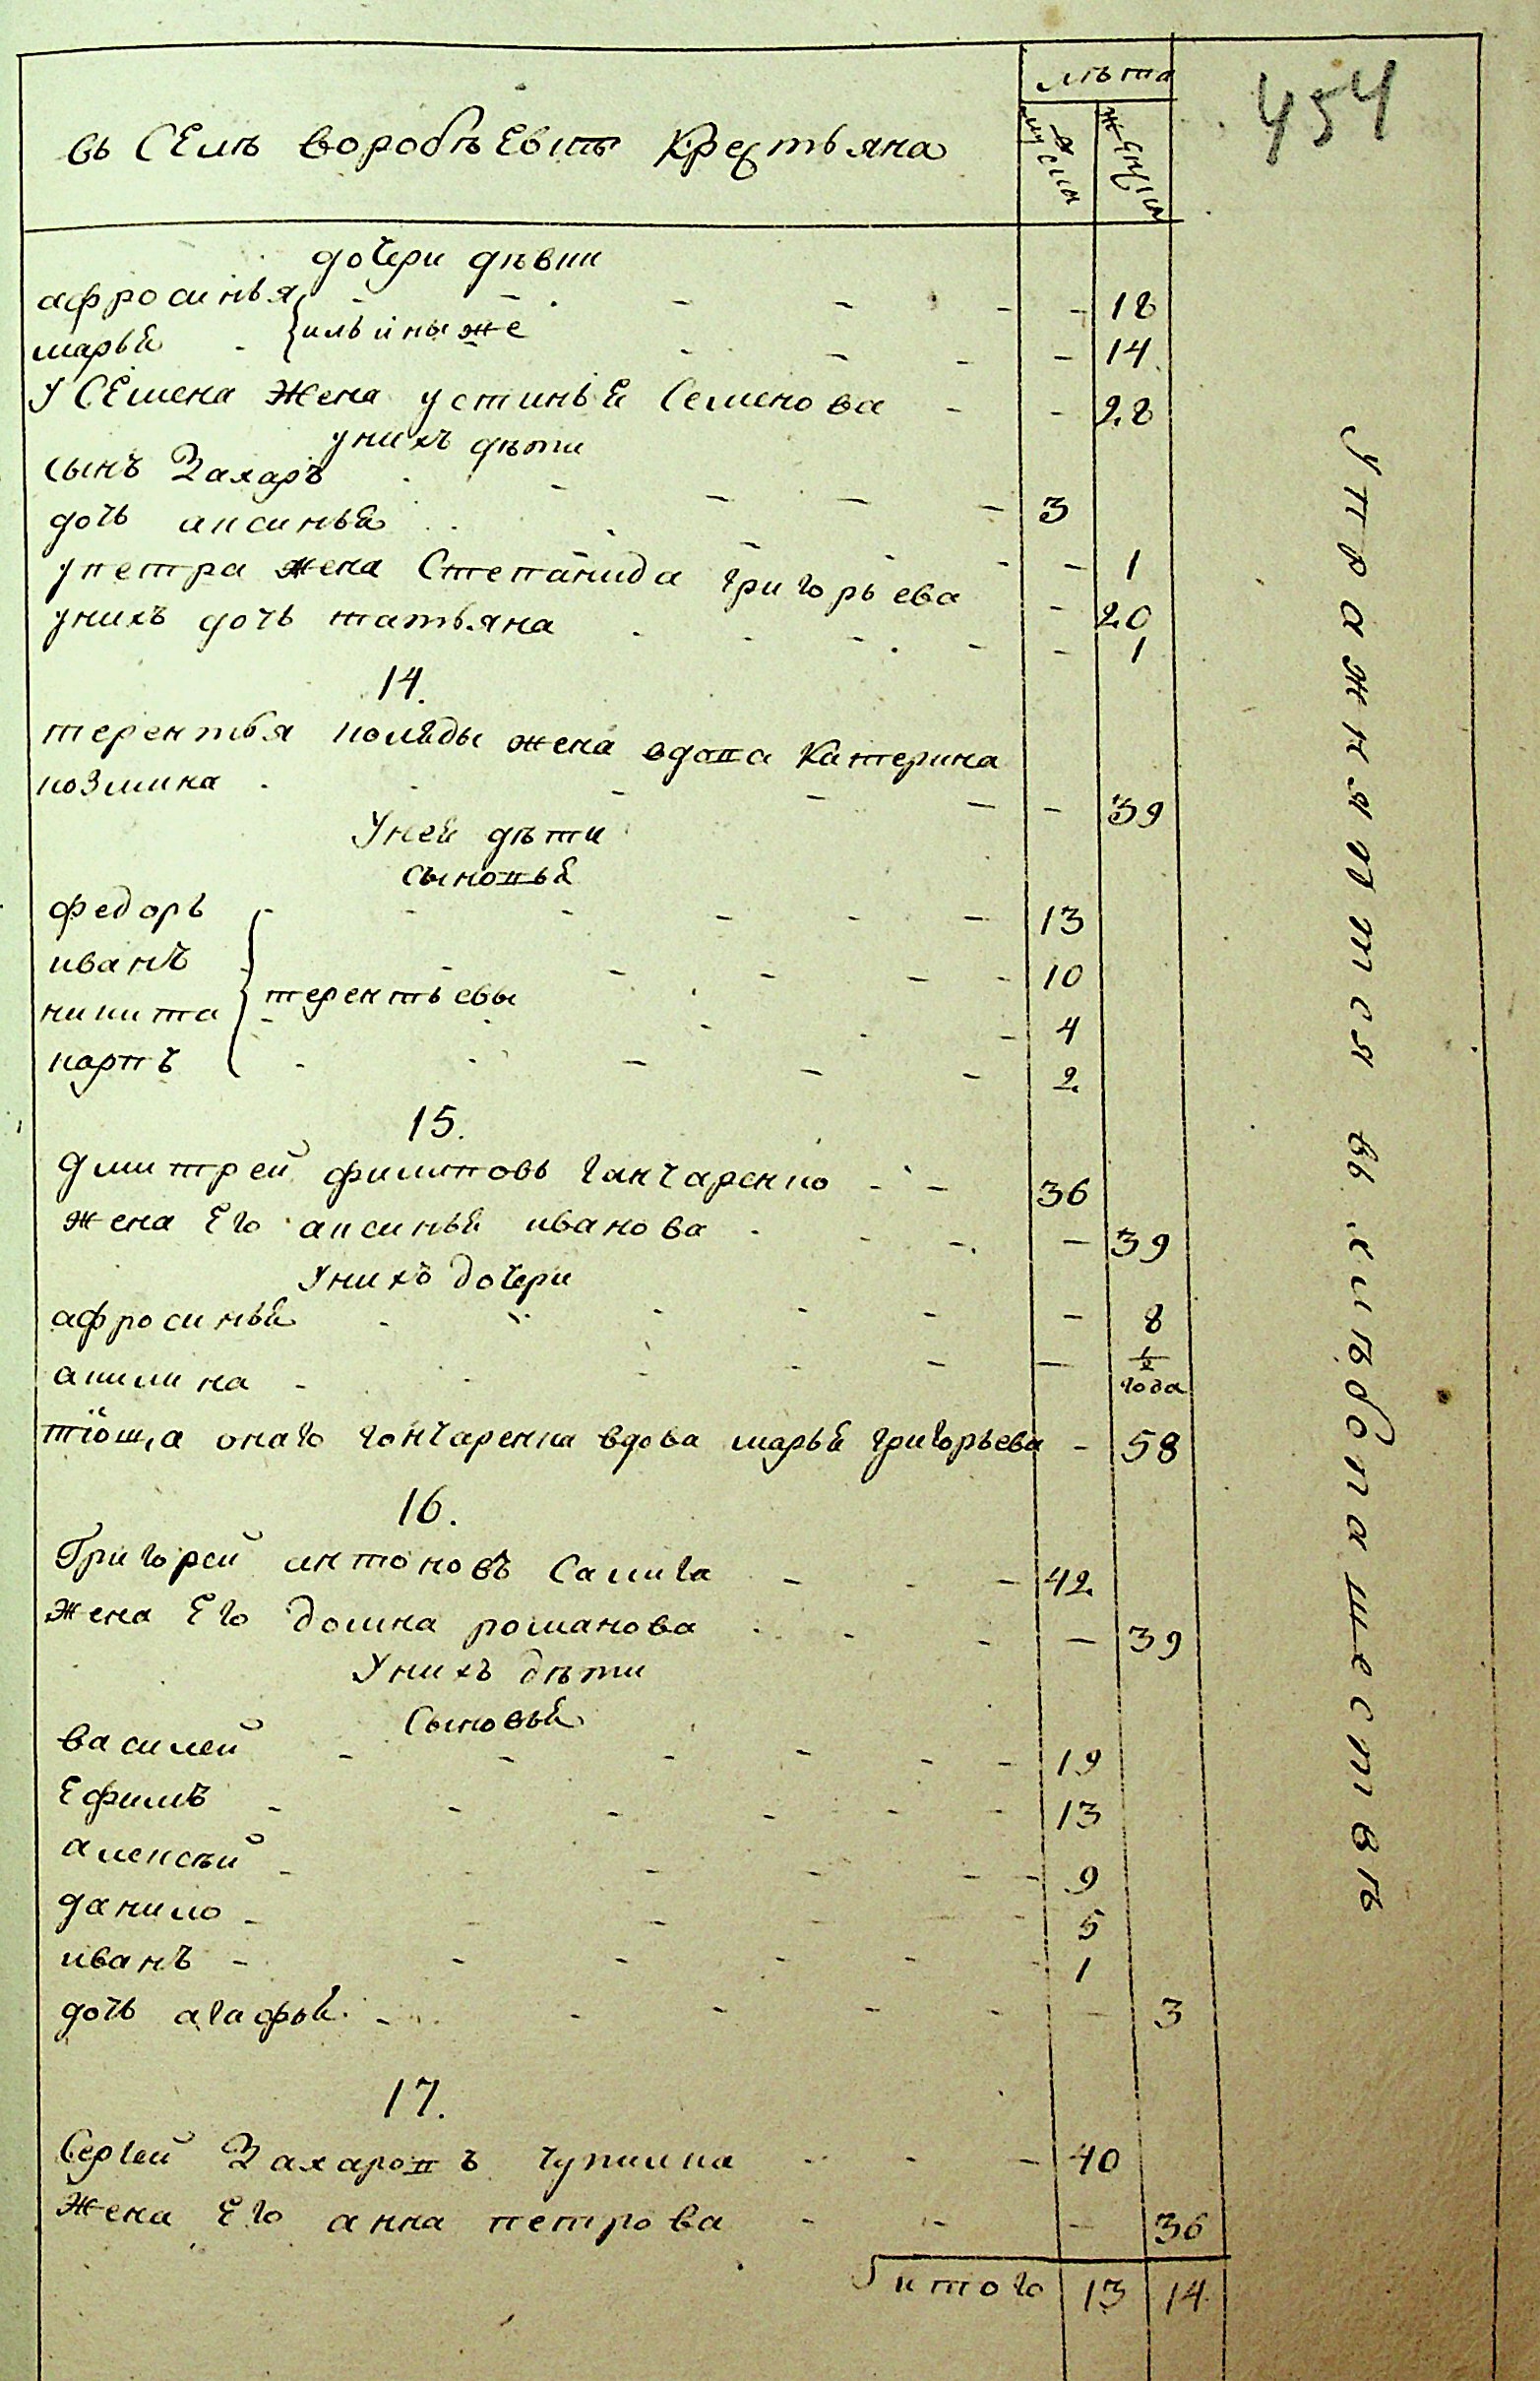 454
лѣта
въ Селѣ Воробѣевкѣ Крестьяна
мужска
женска
дочери дѣвки
афросинья - 18
марья - 14
ильины же
У Семена Жена устинья Семенова - 28
у нихъ дѣти
сынъ Захаръ - 3
дочь аксинья - 1
у петра жена Степанида григорьева - 20
у нихъ дочь татьяна - 1
14.
терентья коляды жена вдова Катерина
козмина - 39
У ней дѣти
сыновья
федоръ - 13
иванъ - 10
терентьевы
никита - 4
карпъ - 2
15.
Дмитрей филиповъ ганчаренко - 36
жена Его аксинья иванова - 39
У нихъ дочери
афросинья - 8
акилина - 1/2 года
тіоща онаго гончаренка вдова марья григорьева - 58
16.
Григорей антоновъ Сапига - 42
жена Его домна романова - 39
У нихъ дѣти
Сыновья
василей - 19
Ефимъ - 13
алексѣй - 9
данило - 5
иванъ - 1
дочь агафья - 3
17.
Сергей Захаровъ чупилка - 40
Жена Его анна петрова - 36
итого 13 14
упражняются въ хлѣбопашествѣ